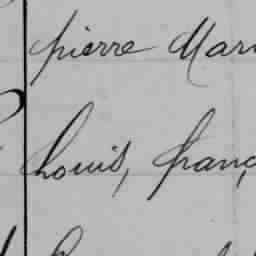 pierre Mar
Louis, franç